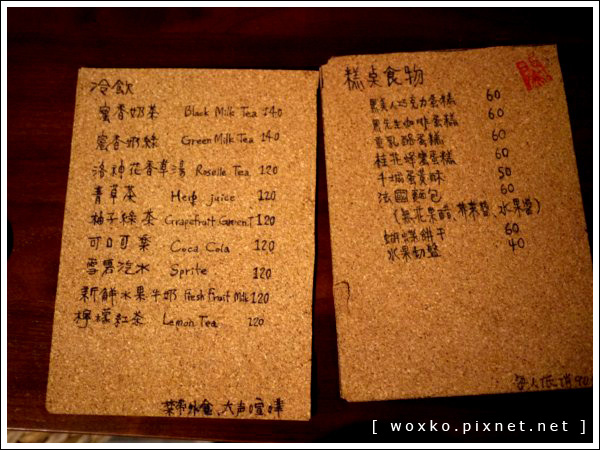 冷飲
蜜香奶茶 Black Milk Tea 140
蜜香奶綠 Green Milk Tea 140
洛神花香草湯 Roselle Tea 120
青草茶 Herb juice 120
柚子綠茶 Grapefruit Green T 120
可口可樂 Coca Cola 120
雪碧汽水 Sprite 120
新鮮水果牛奶 Fresh Fruit Milk 120
檸檬紅茶 Lemon Tea 120
禁帶外食、大声喧嘩
糕桌食物
黑美人巧克力蛋糕 60
黑先生咖啡蛋糕 60
重乳酪蛋糕 60
桂花蜂蜜蛋糕 60
千層蛋黃酥 50
法國麵包 60
(無花果醋、芥茉醬、水果醬)
蝴蝶餅干 60
水果切盤 40
每人低消90
[ woxko.pixnet.net ]